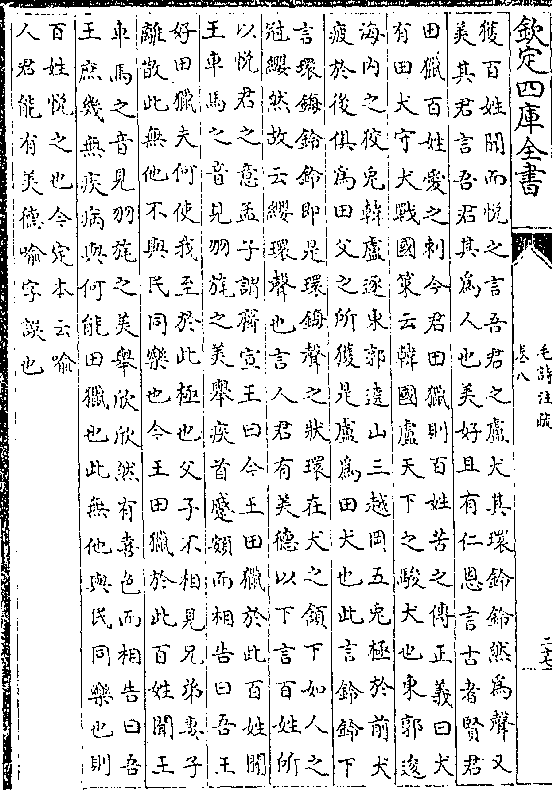 欽定四庫全書
毛詩注疏
卷八
二十七
獲百姓聞而悦之言吾君之盧犬其環鈴鈴然為聲又
美其君言吾君其為人也美好且有仁恩言古者賢君
田獵百姓愛之刺今君田獵則百姓苦之傳正義曰犬
有田犬守犬戰國策云韓國盧天下之駿犬也東郭逡
海内之狡兔韓盧逐東郭遶山三越岡五兔極於前犬
疲於後俱為田父之所獲是盧為田犬也此言鈴鈴下
言環鋂鈴鈴即是環鋂聲之狀環在犬之頷下如人之
冠纓然故云纓環聲也言人君有美德以下言百姓所
以悦君之意孟子謂齊宣王曰今王田獵於此百姓聞
王車馬之音見羽旄之美舉疾首蹙頞而相告曰吾王
好田獵夫何使我至於此極也父子不相見兄弟妻子
離散此無他不與民同樂也今王田獵於此百姓聞王
車馬之音見羽旄之美舉欣欣然有喜色而相告曰吾
王庶幾無疾病與何能田獵也此無他與民同樂也則
百姓悦之也今定本云喻
人君能有美德喻字誤也